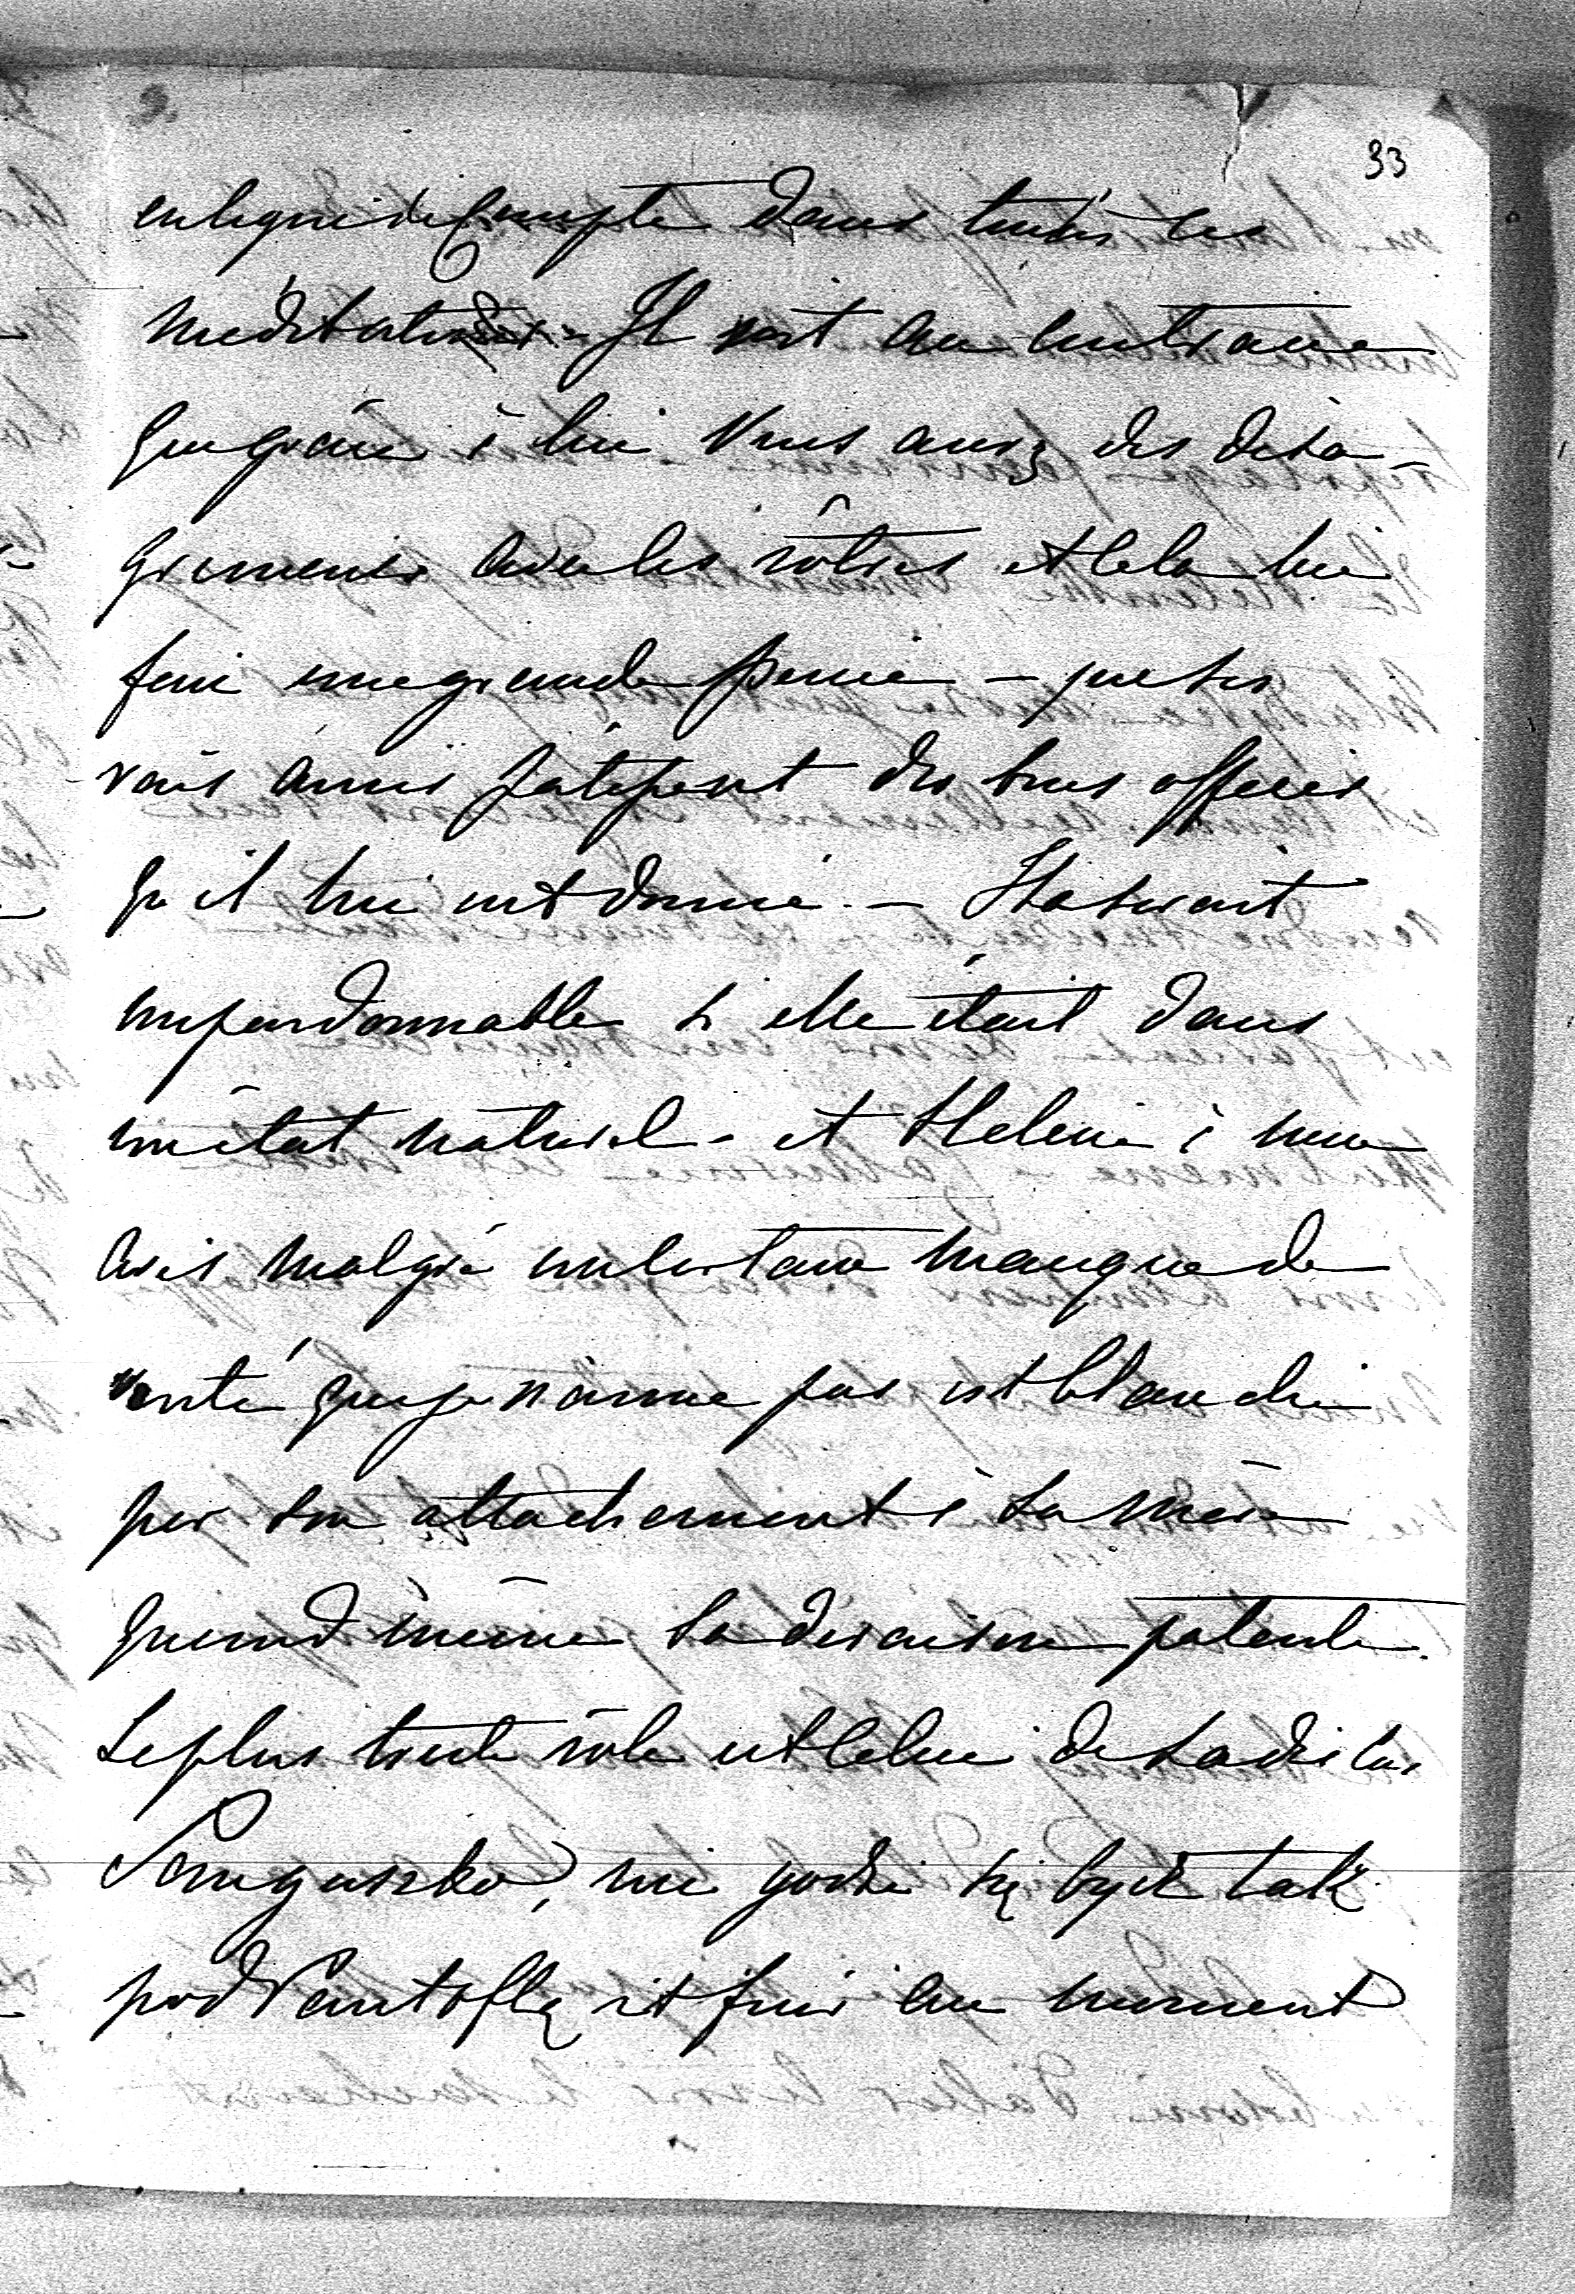 33
en ligne de Compte dans toutes les
méditations. Il voit au contraire
que grâce à lui vous avez des désa-
gréments avec les vôtres et cela lui
fait une grande peine - que ses
vrais amis pâtissent des bons offices
qu'il lui ont donné. - Ha serait
impardonnable si elle était dans
un état naturel - et Helene à mon
avis malgré un certain manque de
que je n'aime pas est blanchie
par son attachement à sa mère
quand même sa déraison patente.
Le plus triste rôle est celui de
Sanguszko, nie godzi się być tak
pod Pantoflą et fuir au moment